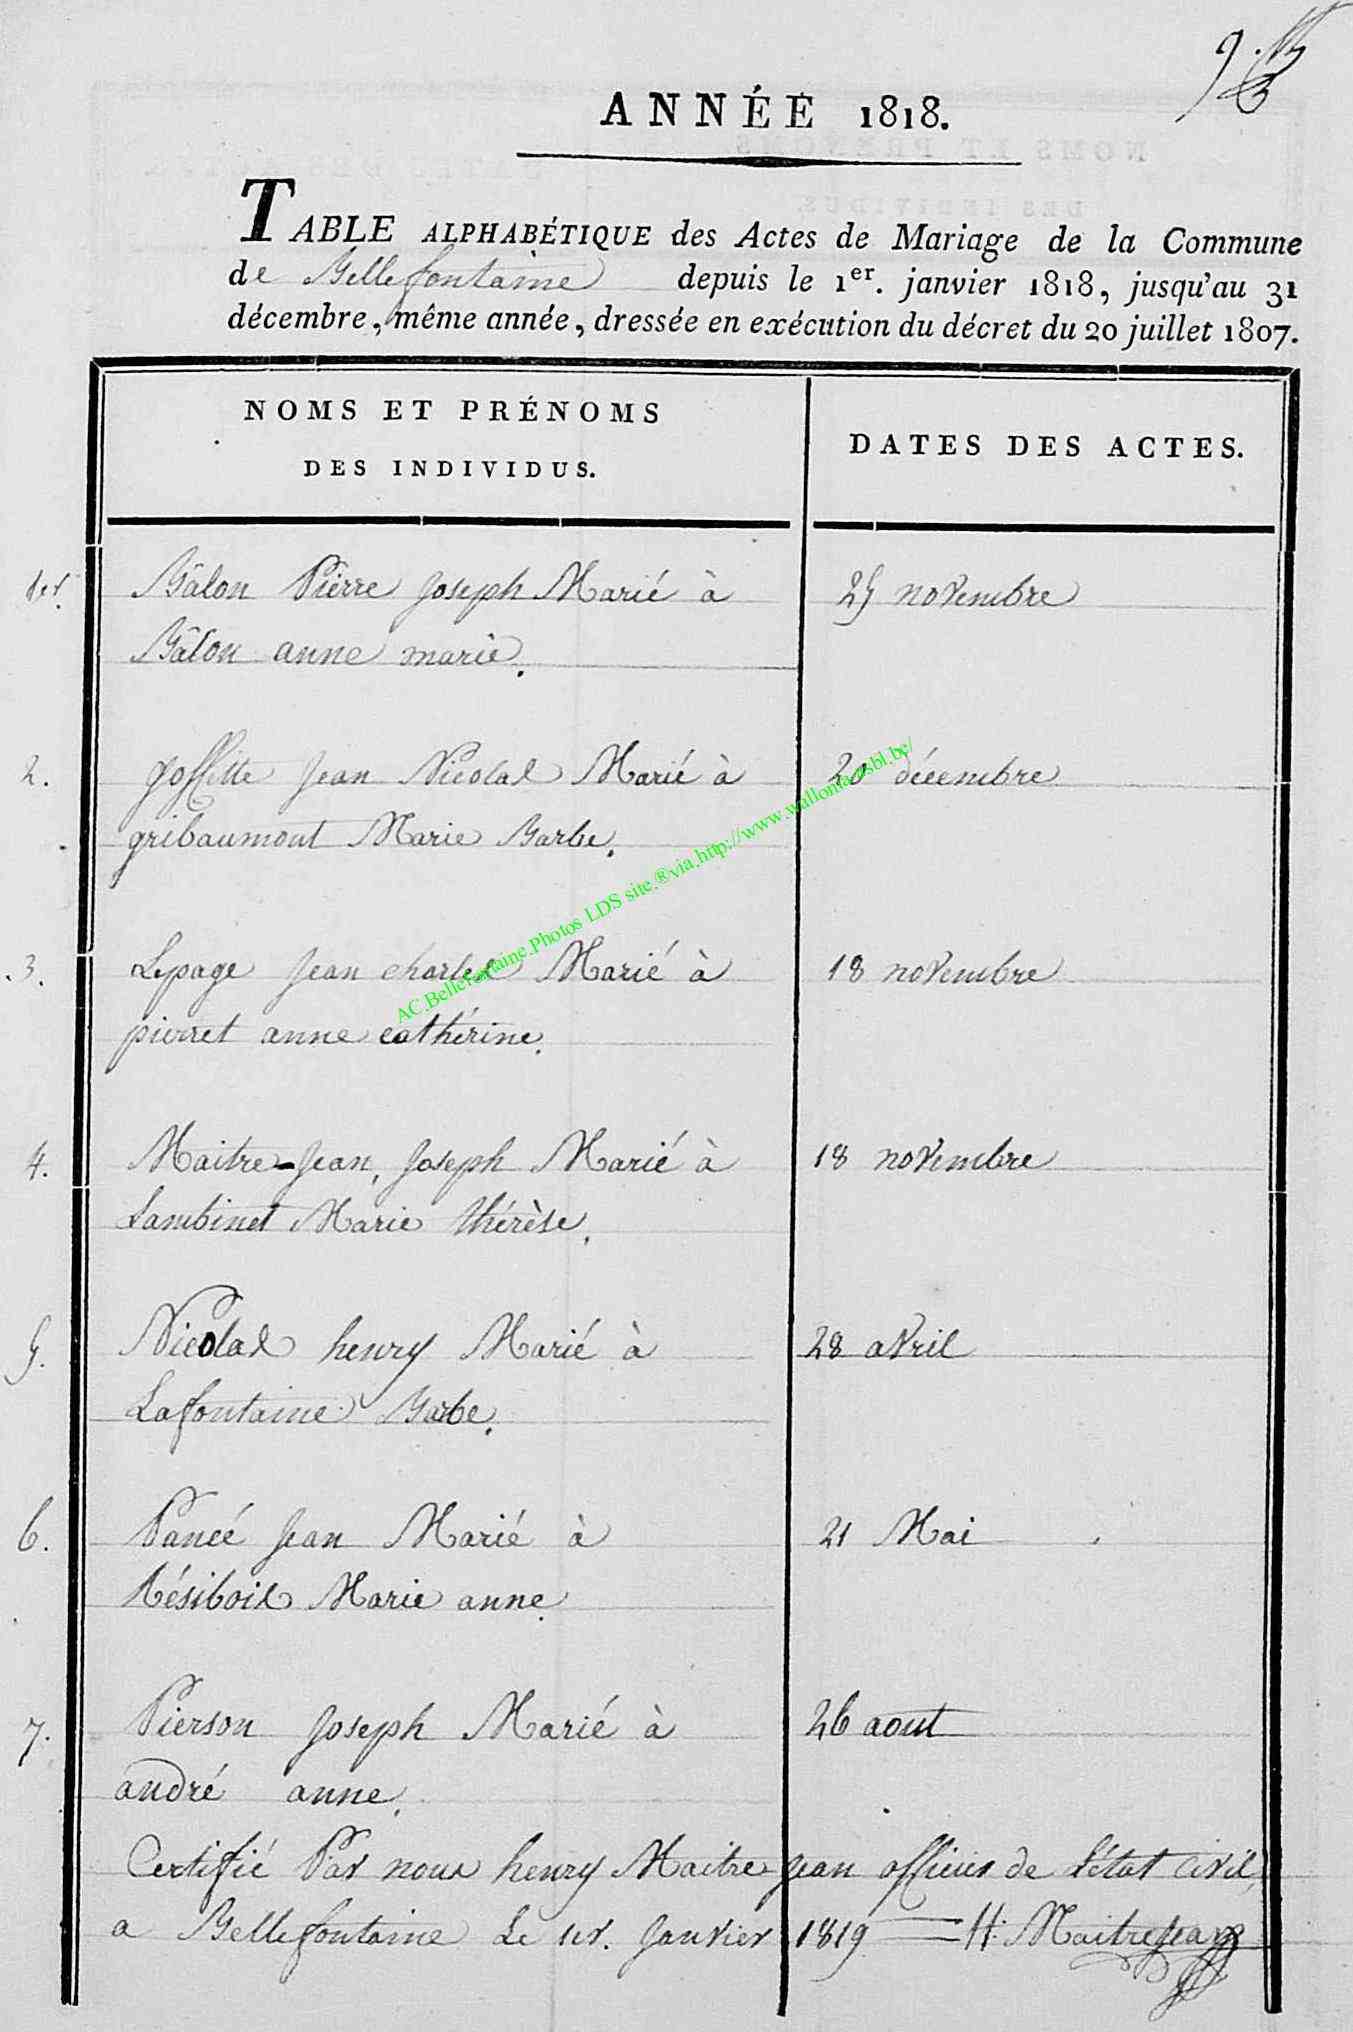 ANNÉE 1818.
TABLE ALPHABÉTIQUE des Actes de Mariage de la Commune
de Bellefontaine depuis le 1er. janvier 1818, jusqu'au 31
décembre, même année, dressée en exécution du décret du 20 juillet 1807.
NOMS ET PRÉNOMS
DES INDIVIDUS.
DATES DES ACTES.
1er. Bâlon Pierre Joseph Marié à 25 novembre
Bâlon anne marie.
2. goffette Jean Nicolas Marié à 20 décembre
gribaumont Marie Barbe.
3. Lepage Jean charles Marié à 18 novembre
pierret anne cathérine.
4. Maitre-Jean, Joseph Marié à 18 novembre
Lambinet Marie thérèse.
5. Nicolas henry Marié à 28 avril
Lafontaine Barbe.
6. Panéé Jean Marié à 21 Mai
Résibois Marie anne
7. Pierson Joseph Marié à 26 aout
andré anne.
Certifié Par nous henry Maitre Jean officier de l'état civil,
a Bellefontaine Le 1er. Janvier 1819 H. Maitrejean
AC.Bellefontaine.Photos LDS site.®via.http://www.wallonia.asbl.be/